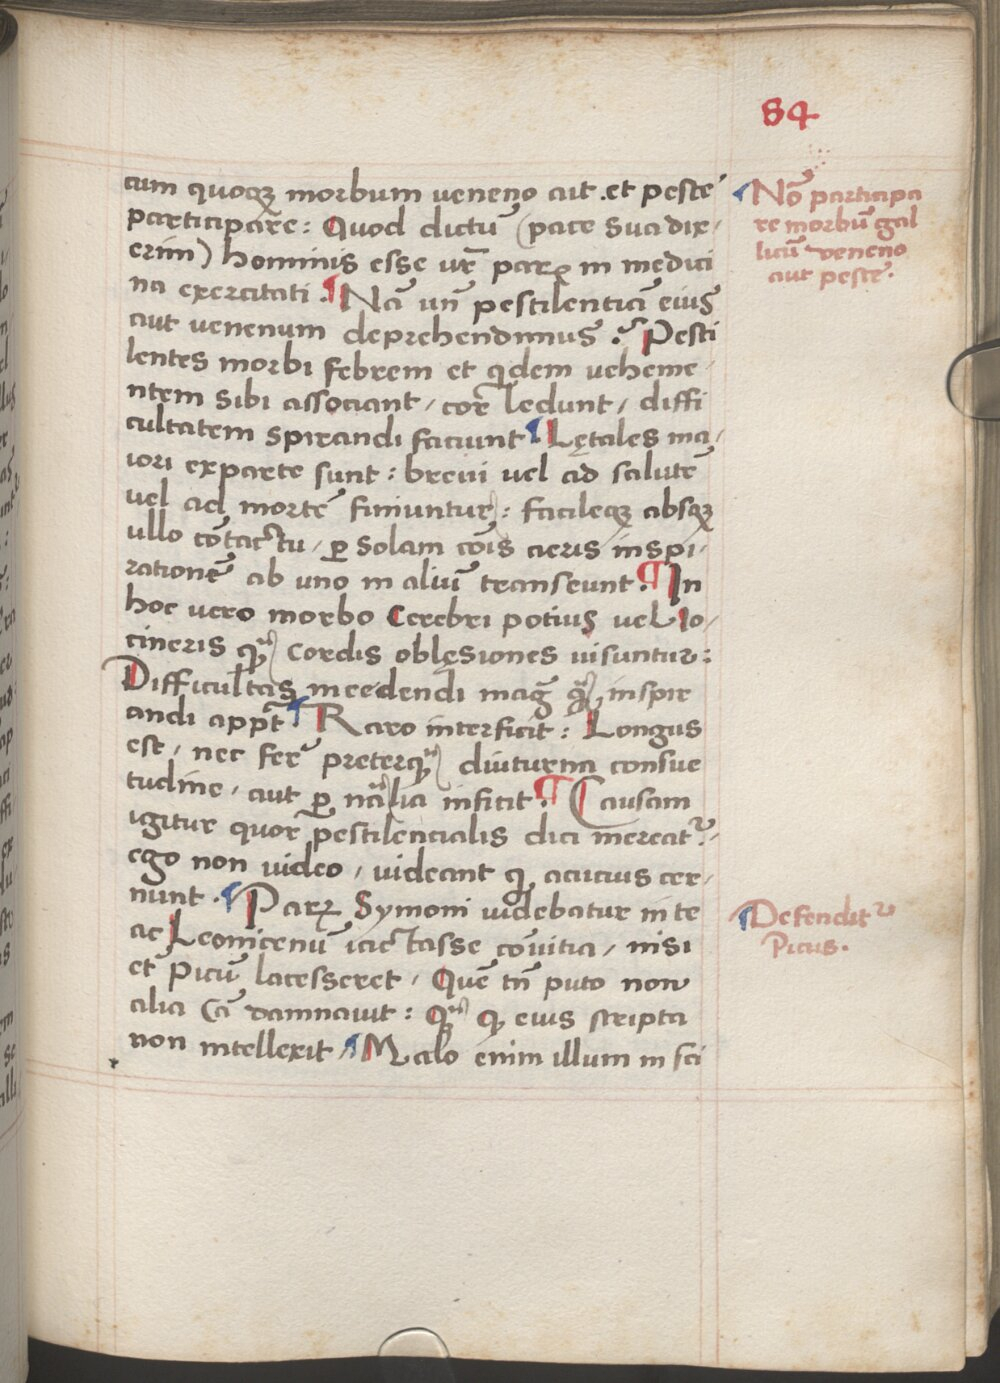 84
cum quoqꝫ morbum veneno aut et peste
participare: Quod dictū (pace sua dix,
erim) hominis esse vr̄ parꝝ in medici
na exercitati. ¶ Nā vn̄ pestilentiā eius
aut venenum deprehendimus? Pesti
lentes morbi febrem et qdem veheme
ntem sibi associant, cor ledunt, diffi
cultatem spirandi faciunt ¶ Lętales ma,
iori exparte sunt: breui vel ad salutē
vel ad mortē finiuntur: facileqꝫ absqꝫ
ullo cōtactu, ꝑ solam cōis aeris inspi,
rationē ab uno in aliū transeunt. ¶ In
hoc vero morbo Cerebri potius vel Io,
cineris qͣꝫ cordis oblęsiones uisuntur:
Difficultas incedendi mag̅ qͣꝫ inspir
andi app̄t ¶ Raro interficit: Longus
est, nec ferᵉ preterqͣꝫ diuturna consue
tudine, aut ꝑ nāͣlia inficit. ¶ Causam
igitur quor pestilencialis dici mereatᷣ,
ego non video, videant q acucius cer,
nunt. ¶ Parꝝ Symoni videbatur in te
ac Leonicenū iactasse cōuitia, nisi
et Picū lacesseret, Quē tn̄ puto non
alia cā damnauit: Qͣꝫ q eius scripta
non intellexit, ¶ Malo enim illum in sci
¶ Nō participa
re morbū gal
licū veneno
aut peste.
¶ Defenditᷣ
Picus.